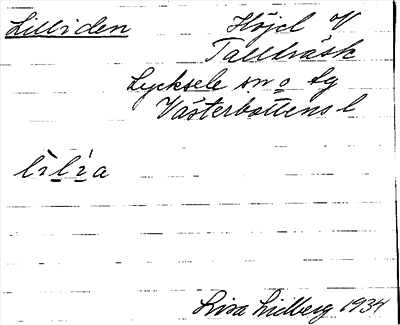 Lilliden Höjd V
Tallträsk
Lycksele sn o lg
Västerbottens l
lìlía
Lisa Lidberg 1934